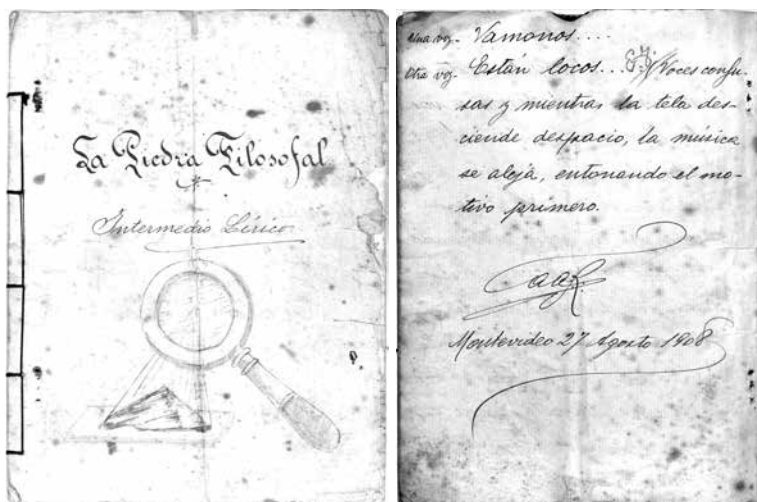 La Piedra Filosofal
Intermedio Lírico
Una voz. Vamonos....
Otra voz. Están locos... Voces confu-
sas y mientras la tela des-
ciende despacio, la música
se aleja, entonando el mo-
tivo primero.
Montevideo 27 Agosto 1908